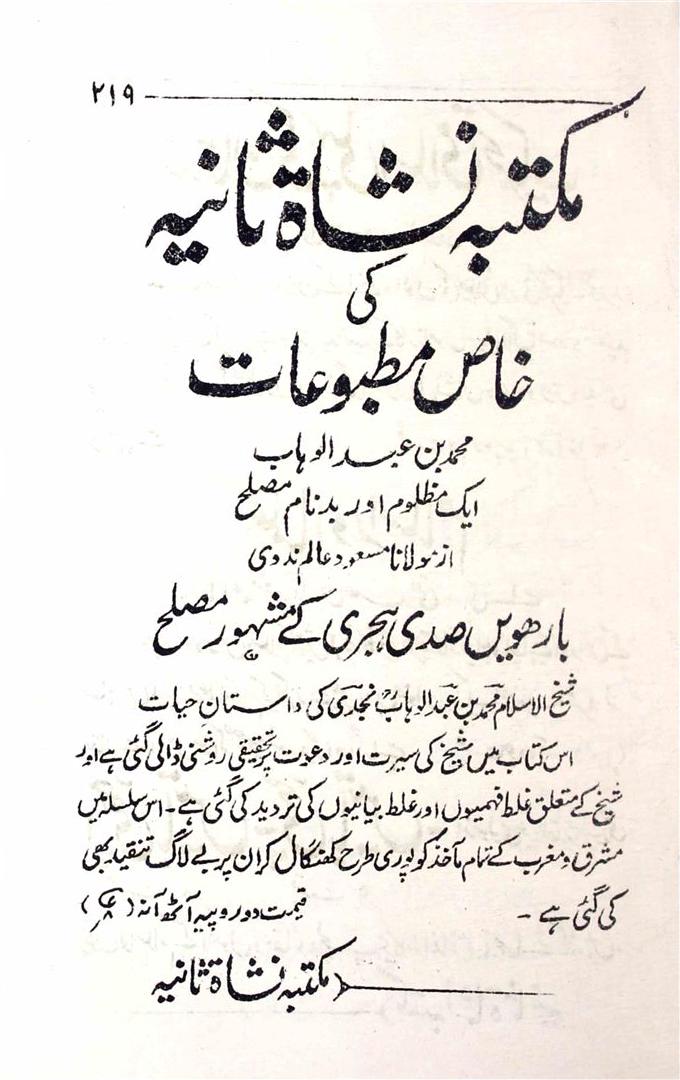 ۲۱۹
مکتبہ نشاۃ ثانیہ
کی
خاص مطبوعات
محمد بن عبد الوہاب
ایک مظلوم اور بدنام مصلح
از مولانا مسعود عالم ندوی
بارھویں صدی ہجری کے مشہور مصلح
شیخ الاسلام محمد بن عبد الوہابؒ نجدی کی داستانِ حیات
اس کتاب میں شیخ کی سیرت اور دعوت پر تحقیقی روشنی ڈالی گئی ہے اور
شیخ کے متعلق غلط فہمیوں اور غلط بیانیوں کی تردید کی گئی ہے۔ اس سلسلہ میں
مشرق و مغرب کے تمام مآخذ کو پوری طرح کھنگال کر ان پر بے لاگ تنقید بھی
کی گئی ہے ۔ قیمت دو روپیہ آٹھ آنہ
مکتبہ نشاۃ ثانیہ